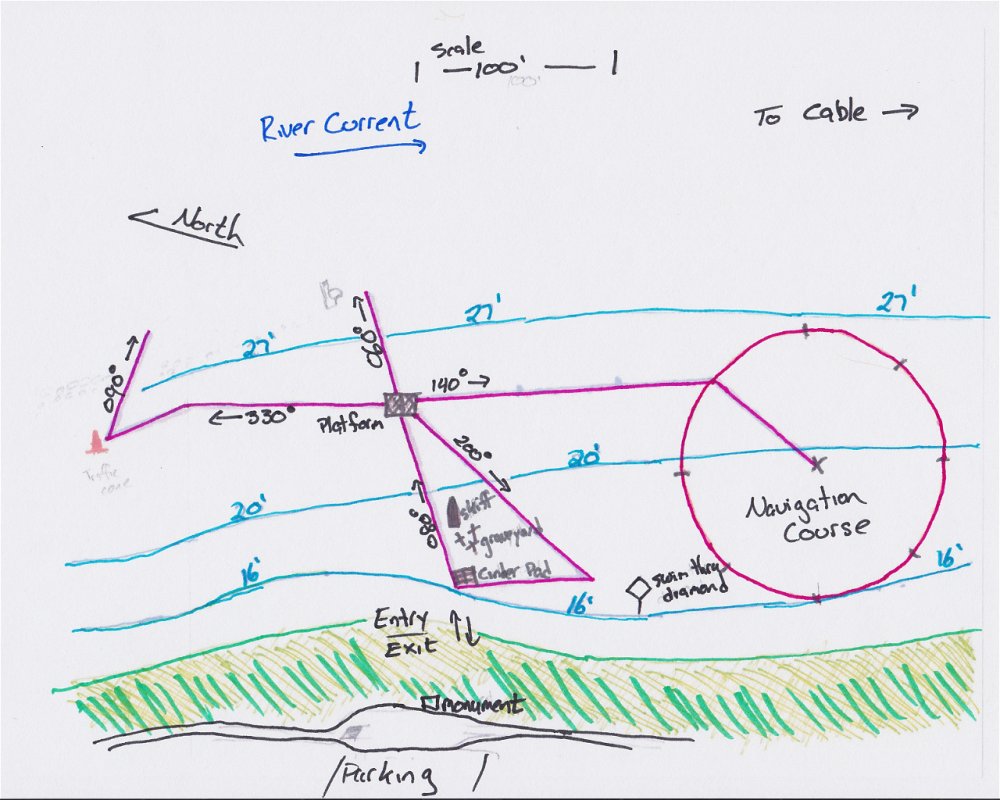 Scale
100'
100'
River Current
To Cable
North
27'
27'
27'
090°
090°
140°
330°
Platform
Traffic
cone
200°
20'
20'
080°
skiff
graveyard
Cinder Pad
Navigation
Course
swim thru
diamond
16'
16'
16'
Entry
Exit
monument
Parking